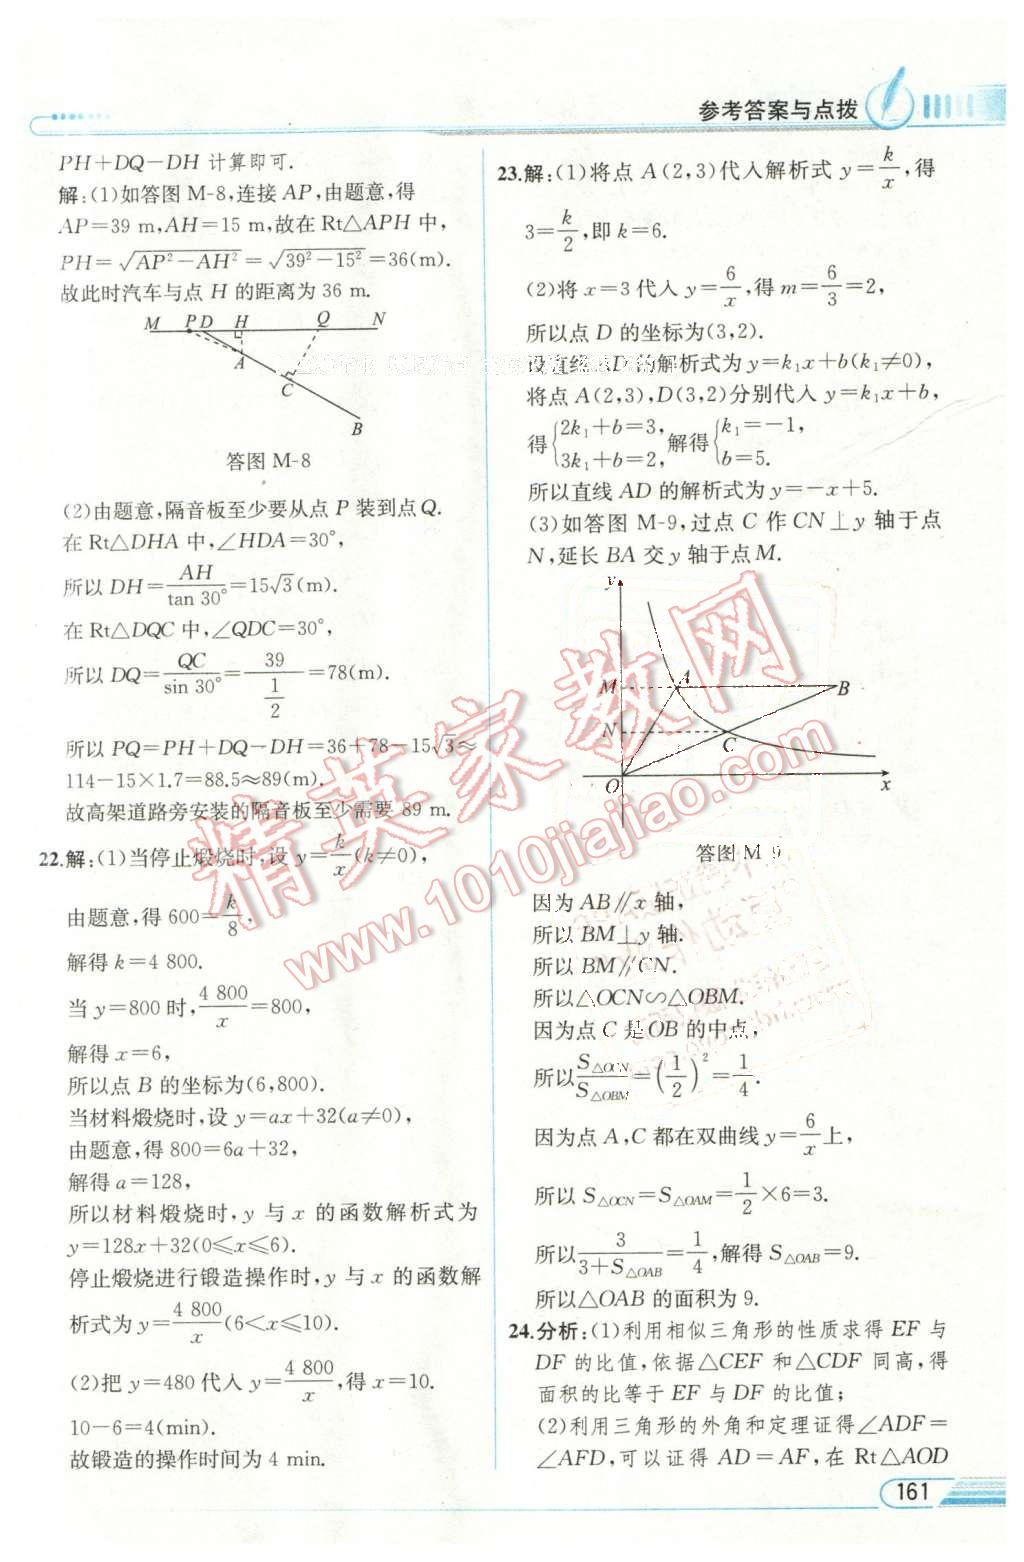 参考答案与点拨
PH+DQ-DH 计算即可.
解:(1)如答图 M-8,连接 AP,由题意,得
AP=39 m,AH=15 m,故在 Rt△APH 中,
PH=√(AP²-AH²)=√(39²-15²)=36(m).
故此时汽车与点 H 的距离为 36 m.
M P D H Q N
A
C
B
答图 M-8
(2)由题意,隔音板至少要从点 P 装到点 Q.
在 Rt△DHA 中,∠HDA=30°,
所以 DH=AH/tan 30°=15√3(m).
在 Rt△DQC 中,∠QDC=30°,
所以 DQ=QC/sin 30°=39/(1/2)=78(m).
所以 PQ=PH+DQ-DH=36+78-15√3≈
114-15×1.7=88.5≈89(m).
故高架道路旁安装的隔音板至少需要 89 m.
22.解:(1)当停止煅烧时,设 y=k/x(k≠0),
由题意,得 600=k/8,
解得 k=4 800.
当 y=800 时,4 800/x=800,
解得 x=6,
所以点 B 的坐标为(6,800).
当材料煅烧时,设 y=ax+32(a≠0),
由题意,得 800=6a+32,
解得 a=128,
所以材料煅烧时,y 与 x 的函数解析式为
y=128x+32(0≤x≤6).
停止煅烧进行锻造操作时,y 与 x 的函数解
析式为 y=4 800/x(6<x≤10).
(2)把 y=480 代入 y=4 800/x,得 x=10.
10-6=4(min).
故锻造的操作时间为 4 min.
23.解:(1)将点 A(2,3)代入解析式 y=k/x,得
3=k/2,即 k=6.
(2)将 x=3 代入 y=6/x,得 m=6/3=2,
所以点 D 的坐标为(3,2).
设直线 AD 的解析式为 y=k₁x+b(k₁≠0),
将点 A(2,3),D(3,2)分别代入 y=k₁x+b,
得{2k₁+b=3, 3k₁+b=2, 解得{k₁=-1, b=5.
所以直线 AD 的解析式为 y=-x+5.
(3)如答图 M-9,过点 C 作 CN⊥y 轴于点
N,延长 BA 交 y 轴于点 M.
y
M A B
N C
O x
答图 M-9
因为 AB∥x 轴,
所以 BM⊥y 轴.
所以 BM∥CN.
所以△OCN∽△OBM.
因为点 C 是 OB 的中点,
所以 S△OCN/S△OBM=(1/2)²=1/4.
因为点 A,C 都在双曲线 y=6/x 上,
所以 S△OCN=S△OAM=1/2×6=3.
所以 3/(3+S△OAB)=1/4,解得 S△OAB=9.
所以△OAB 的面积为 9.
24.分析:(1)利用相似三角形的性质求得 EF 与
DF 的比值,依据△CEF 和△CDF 同高,得
面积的比等于 EF 与 DF 的比值;
(2)利用三角形的外角和定理证得∠ADF=
∠AFD,可以证得 AD=AF,在 Rt△AOD
161
精英家教网
www.1010jiajiao.com